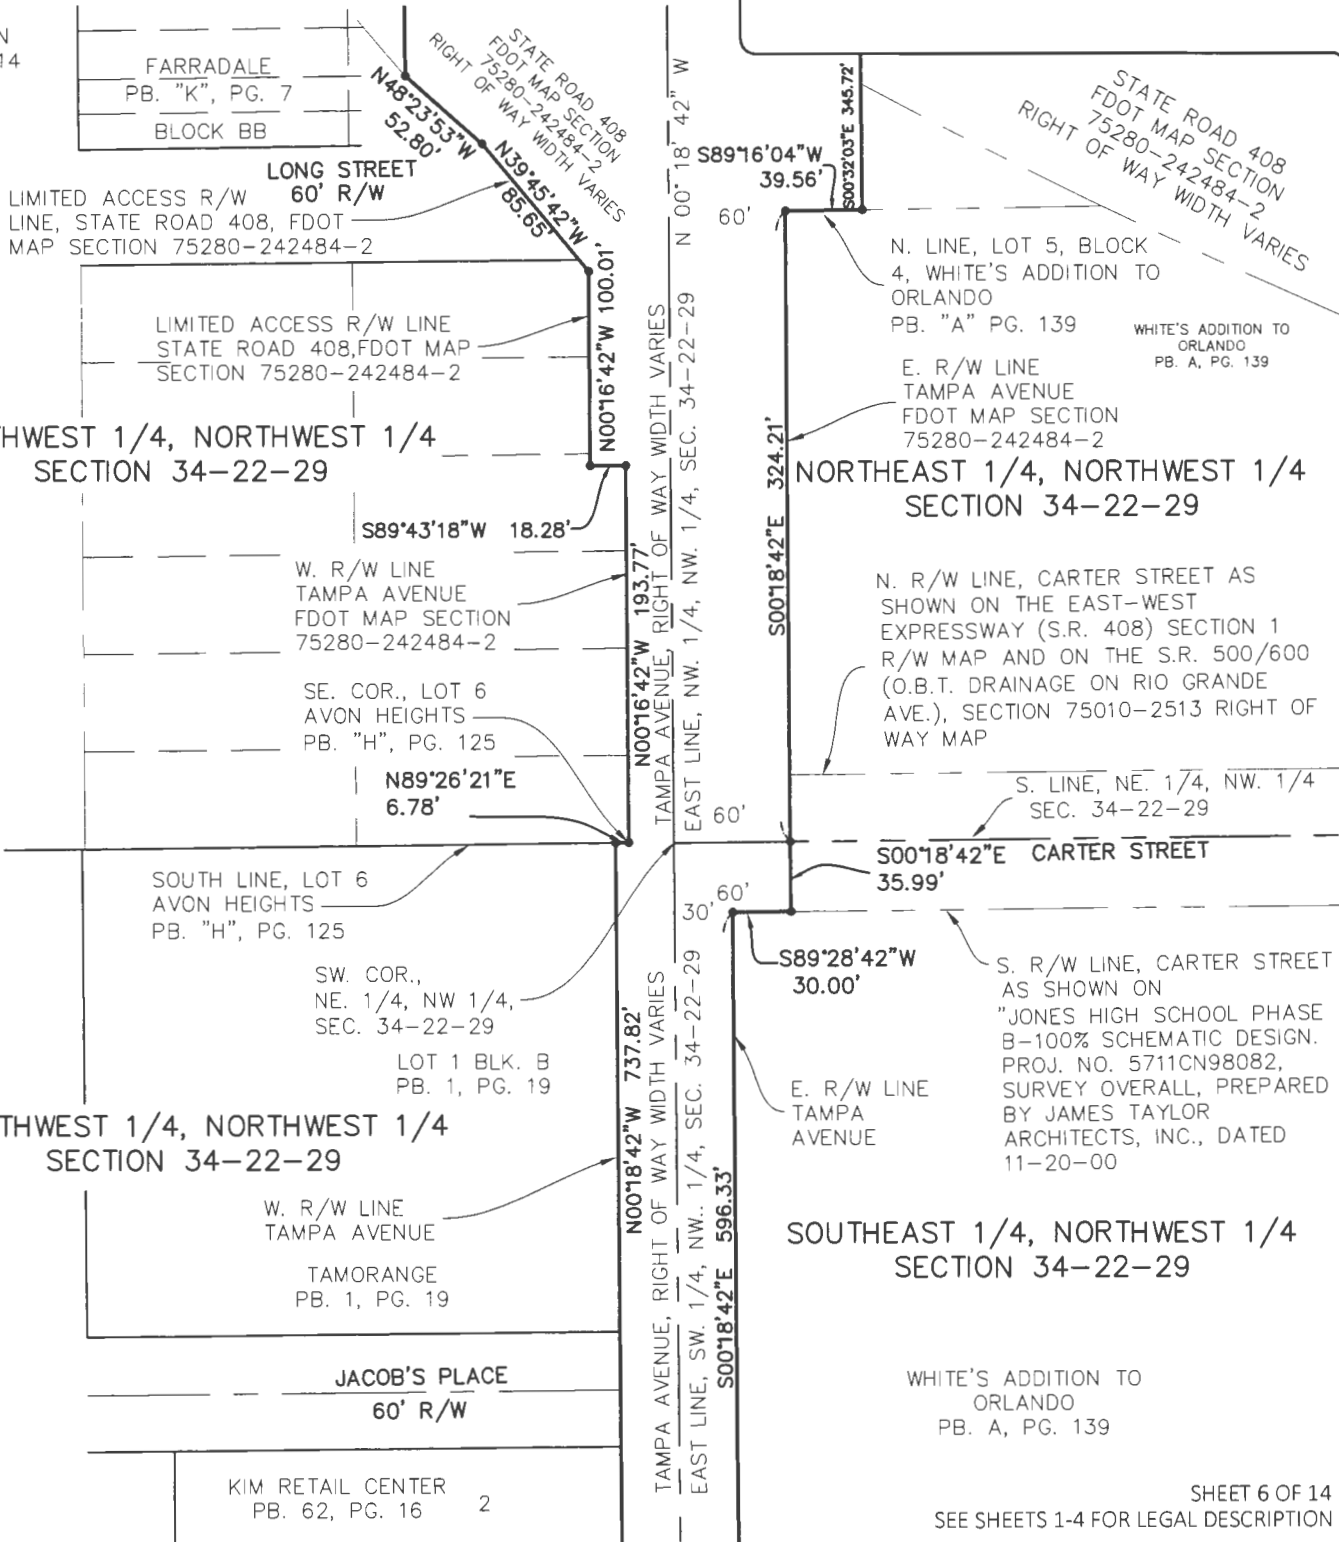 N
14
FARRADALE
PB. "K", PG. 7
BLOCK BB
LONG STREET
60' R/W
LIMITED ACCESS R/W
LINE, STATE ROAD 408, FDOT
MAP SECTION 75280-242484-2
N48°23'53"W
52.80'
STATE ROAD 408
FDOT MAP SECTION
75280-242484-2
RIGHT OF WAY WIDTH VARIES
N39°45'42"W
85.65'
N 00° 18' 42" W
S89°16'04"W
39.56'
S00°32'03"E 345.72'
60'
STATE ROAD 408
FDOT MAP SECTION
75280-242484-2
RIGHT OF WAY WIDTH VARIES
N. LINE, LOT 5, BLOCK
4, WHITE'S ADDITION TO
ORLANDO
PB. "A" PG. 139
WHITE'S ADDITION TO
ORLANDO
PB. A, PG. 139
LIMITED ACCESS R/W LINE
STATE ROAD 408,FDOT MAP
SECTION 75280-242484-2
N00°16'42"W 100.01'
E. R/W LINE
TAMPA AVENUE
FDOT MAP SECTION
75280-242484-2
THWEST 1/4, NORTHWEST 1/4
SECTION 34-22-29
NORTHEAST 1/4, NORTHWEST 1/4
SECTION 34-22-29
S89°43'18"W 18.28'
W. R/W LINE
TAMPA AVENUE
FDOT MAP SECTION
75280-242484-2
N00°16'42"W 193.77'
TAMPA AVENUE, RIGHT OF WAY WIDTH VARIES
EAST LINE, NW. 1/4, NW. 1/4, SEC. 34-22-29
S00°18'42"E 324.21'
N. R/W LINE, CARTER STREET AS
SHOWN ON THE EAST-WEST
EXPRESSWAY (S.R. 408) SECTION 1
R/W MAP AND ON THE S.R. 500/600
(O.B.T. DRAINAGE ON RIO GRANDE
AVE.), SECTION 75010-2513 RIGHT OF
WAY MAP
SE. COR., LOT 6
AVON HEIGHTS
PB. "H", PG. 125
N89°26'21"E
6.78'
S. LINE, NE. 1/4, NW. 1/4
SEC. 34-22-29
60'
S00°18'42"E CARTER STREET
35.99'
SOUTH LINE, LOT 6
AVON HEIGHTS
PB. "H", PG. 125
60'
30'
S89°28'42"W
30.00'
SW. COR.,
NE. 1/4, NW 1/4,
SEC. 34-22-29
S. R/W LINE, CARTER STREET
AS SHOWN ON
"JONES HIGH SCHOOL PHASE
B-100% SCHEMATIC DESIGN.
PROJ. NO. 5711CN98082,
SURVEY OVERALL, PREPARED
BY JAMES TAYLOR
ARCHITECTS, INC., DATED
11-20-00
LOT 1 BLK. B
PB. 1, PG. 19
E. R/W LINE
TAMPA
AVENUE
THWEST 1/4, NORTHWEST 1/4
SECTION 34-22-29
N00°18'42"W 737.82'
TAMPA AVENUE, RIGHT OF WAY WIDTH VARIES
EAST LINE, SW. 1/4, NW.. 1/4, SEC. 34-22-29
S00°18'42"E 596.33'
W. R/W LINE
TAMPA AVENUE
SOUTHEAST 1/4, NORTHWEST 1/4
SECTION 34-22-29
TAMORANGE
PB. 1, PG. 19
JACOB'S PLACE
60' R/W
WHITE'S ADDITION TO
ORLANDO
PB. A, PG. 139
KIM RETAIL CENTER
PB. 62, PG. 16
2
SHEET 6 OF 14
SEE SHEETS 1-4 FOR LEGAL DESCRIPTION